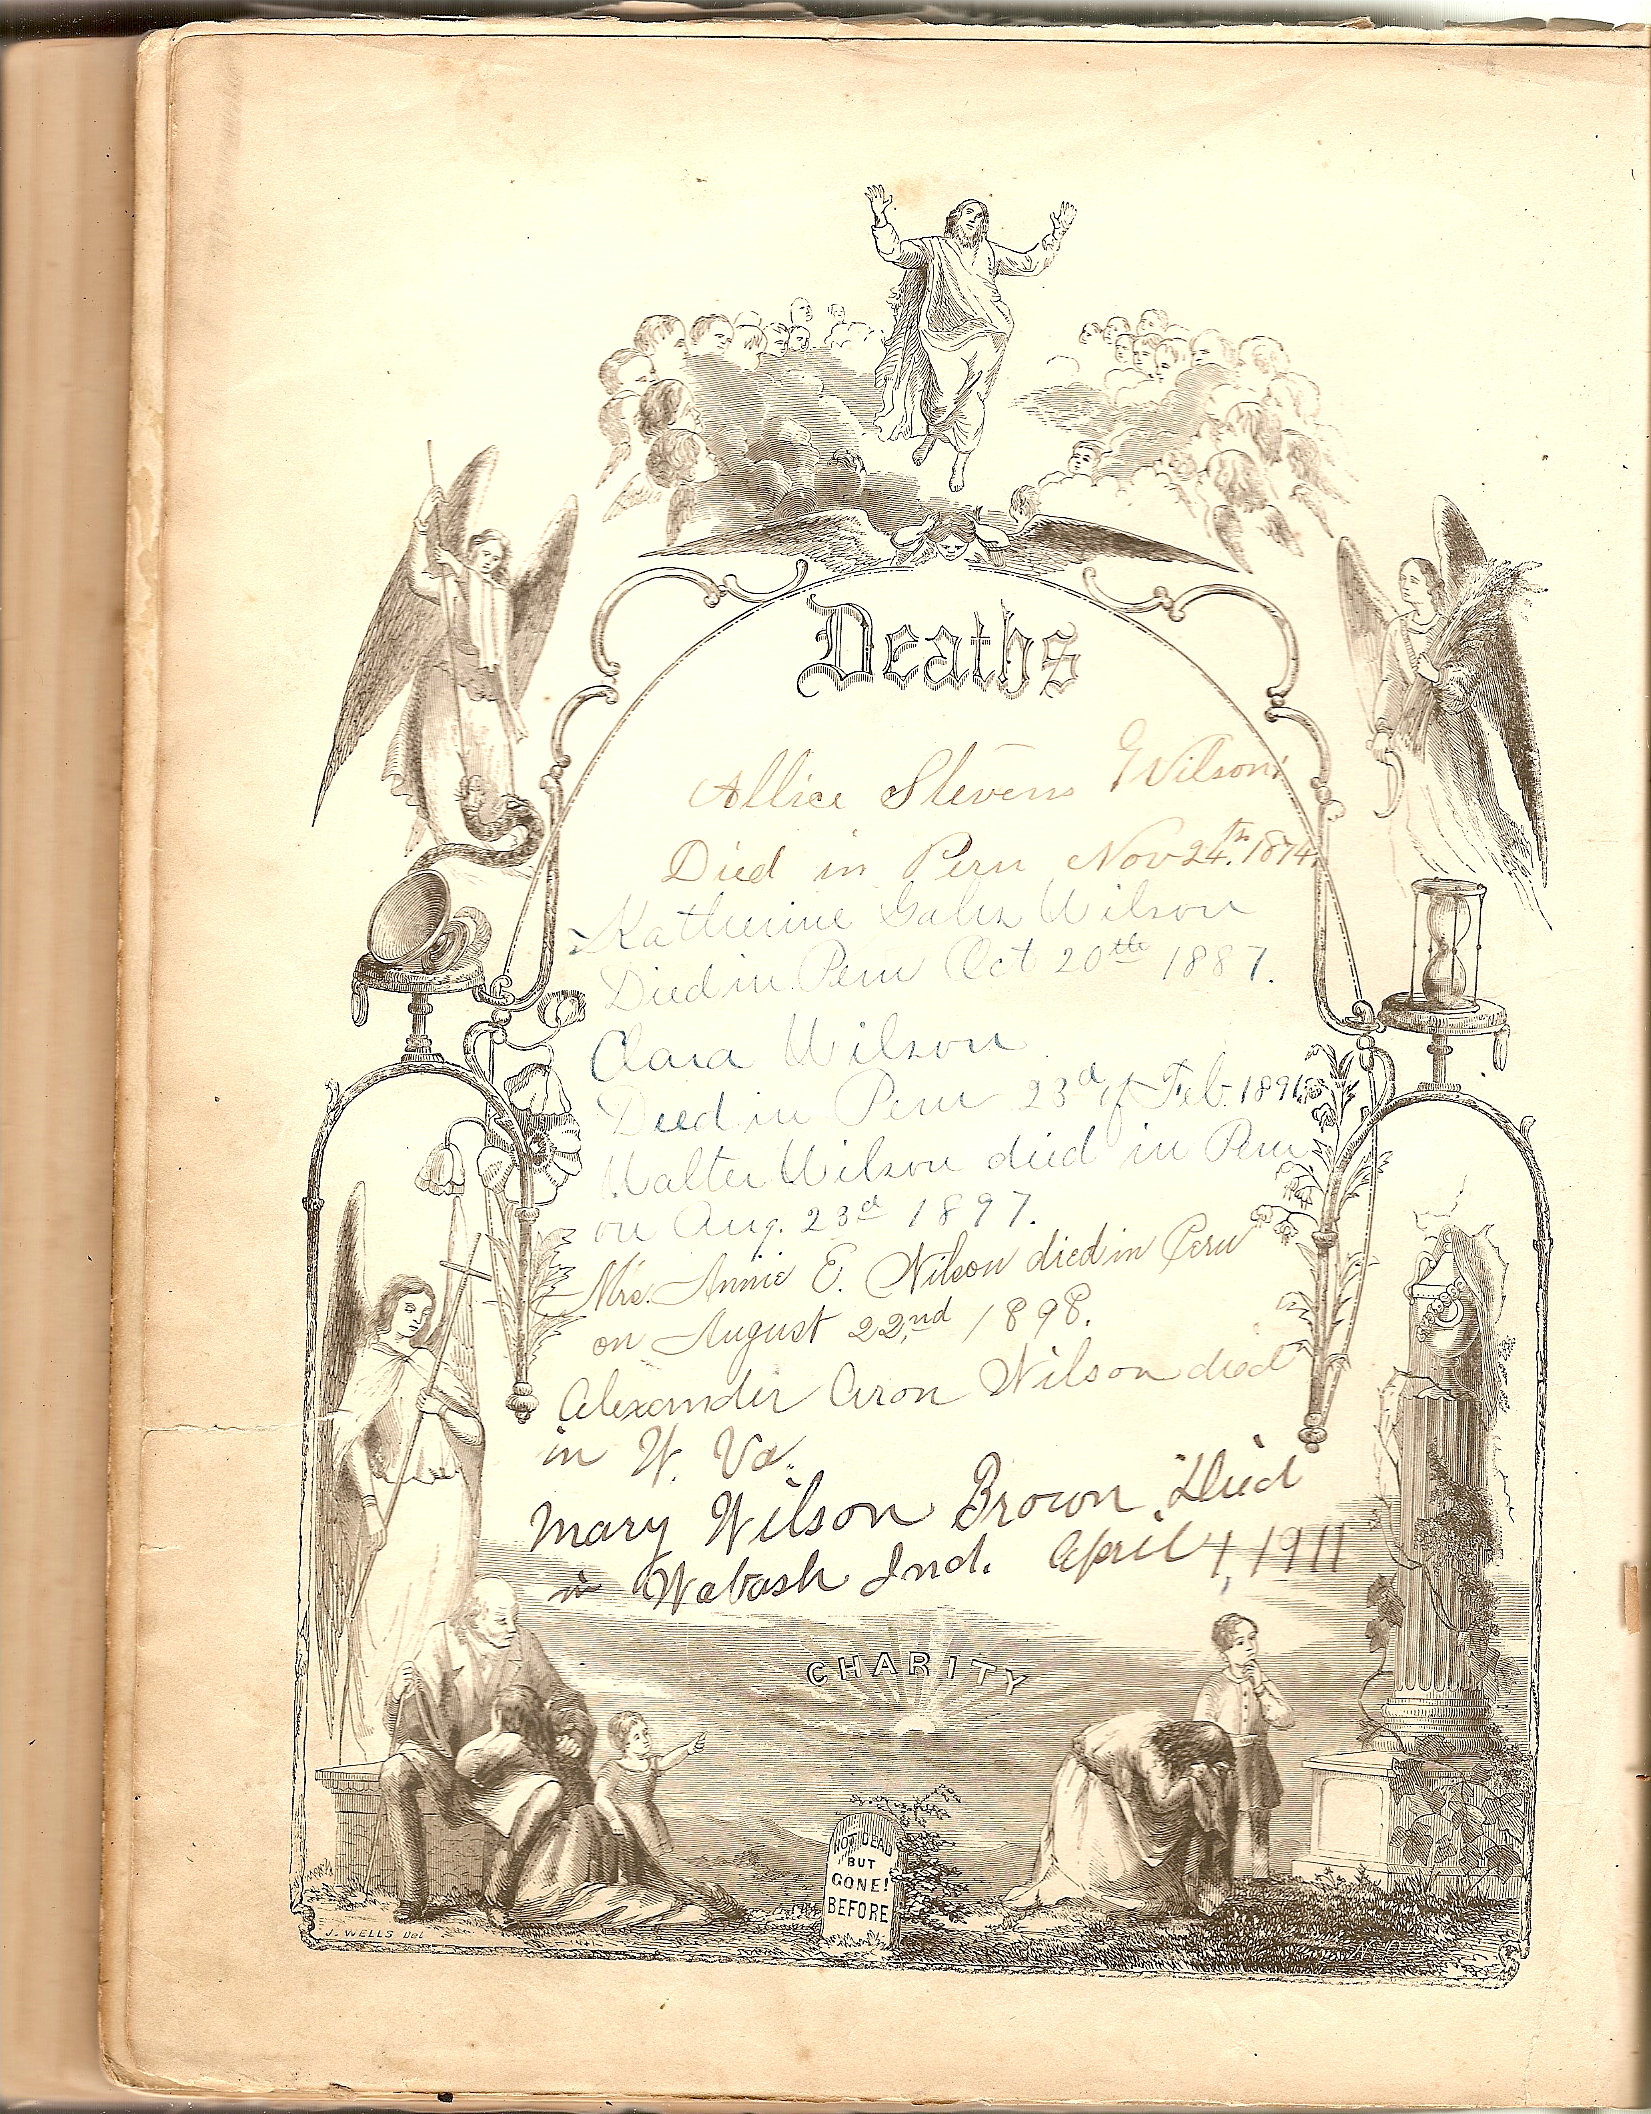 Deaths
Allice Stevens Wilson
Died in Peru Nov 24.th 1874.
Katherine Galen Wilson
Died in Peru Oct 20th 1887.
Clara Wilson
Died in Peru 23d of Feb. 1896
Walter Wilson died in Peru
on Aug. 23d 1897.
Mrs. Annie E. Wilson died in Peru
on August 22nd 1898.
Alexander Aron Wilson died
in W. Va.
Mary Wilson Brown Died
in Wabash Ind. April 4, 1911
CHARITY
NOT DEAD
BUT
GONE!
BEFORE
J. WELLS Del